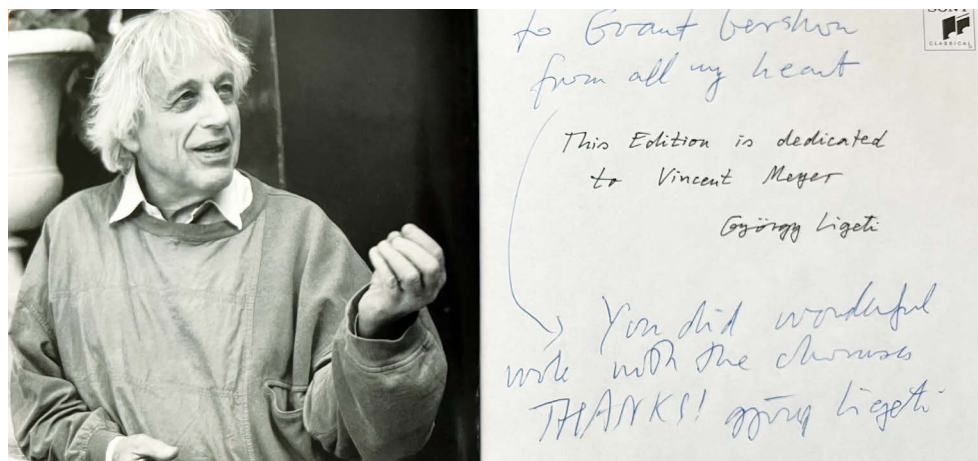 SONY
CLASSICAL
to Grant Gershon
from all my heart
This Edition is dedicated
to Vincent Meyer
György Ligeti
You did wonderful
work with the choruses
THANKS! györgy ligeti